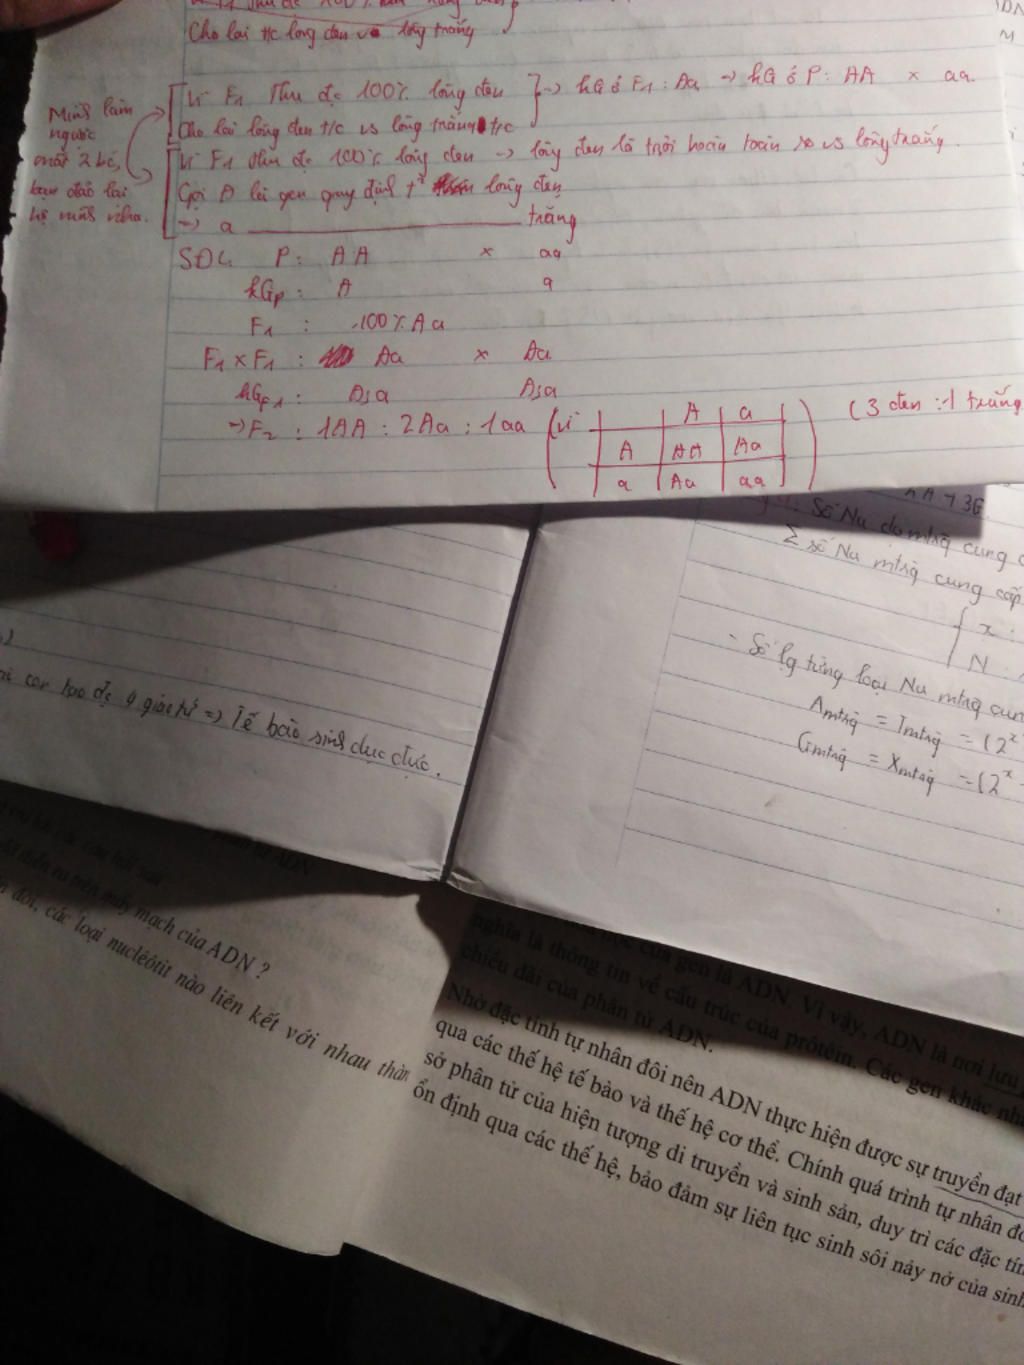 Cho lai t/c lông đen vs lông trắng
Mình làm
ngược
mất 2 bc,
bạn đảo lại
hộ mình nha.
Vì F1 thu đc 100% lông đen
Cho lai lông đen t/c vs lông trắng t/c
→ kG ở F1: Aa → kG ở P: AA × aa
Vì F1 thu đc 100% lông đen → lông đen là trội hoàn toàn so vs lông trắng.
Gọi A là gen quy định t² lông đen
→ a ________ trắng
SĐL P: AA × aa
kGp: A a
F1: 100% Aa
F1 × F1: Aa × Aa
kGF1: A;a A;a
→ F2: 1AA : 2Aa : 1aa (vì
A a
A AA Aa
a Aa aa )
(3 đen : 1 trắng
con tạo đc 4 giao tử => Tế bào sinh dục đực.
Số Nu do mtrg cung
Σ số Nu mtrg cung cấp
x
N
- Số lg từng loại Nu mtrg cun
Amtrg = Tmtrg = (2^x
Gmtrg = Xmtrg = (2^x -
mạch của ADN ?
đôi, các loại nuclêôtit nào liên kết với nhau thàn
của gen là ADN. Vì vậy, ADN là nơi lưu
nghĩa là thông tin về cấu trúc của prôtêin. Các gen khác nh
chiều dài của phân tử ADN.
Nhờ đặc tính tự nhân đôi nên ADN thực hiện được sự truyền đạt
qua các thế hệ tế bào và thế hệ cơ thể. Chính quá trình tự nhân đô
sở phân tử của hiện tượng di truyền và sinh sản, duy trì các đặc tín
ổn định qua các thế hệ, bảo đảm sự liên tục sinh sôi nảy nở của sinh